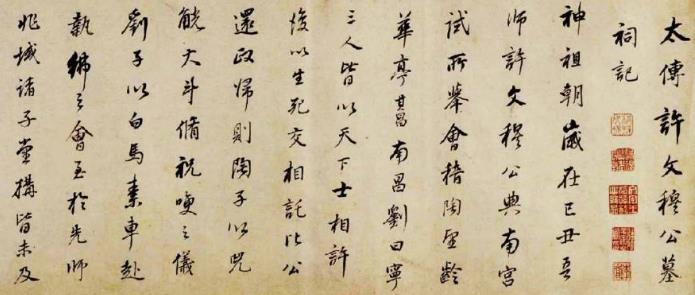 太傅許文穆公墓
祠記
神祖朝歲在己丑吾
師許文穆公典南宮
試所舉會稽陶望齡
華亭其昌南昌劉曰寧
三人皆以天下士相許
後以生死交相託比公
還政歸則陶子以兕
觥大斗脩祝哽之儀
劉子以白馬素車赴
執紼之會至於先師
兆域諸子堂搆皆未及